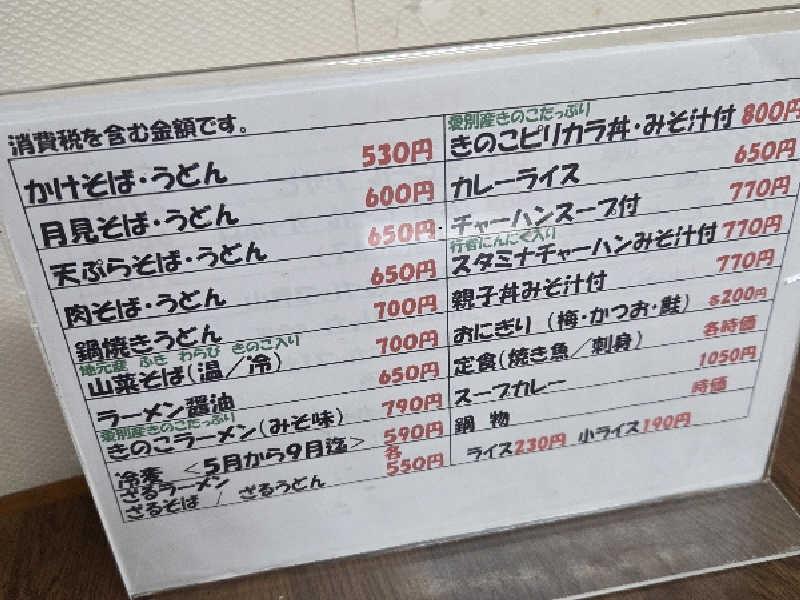 消費税を含む金額です。
かけそば・うどん 530円
月見そば・うどん 600円
天ぷらそば・うどん 650円
肉そば・うどん 650円
鍋焼きうどん 700円
地元産 ふき わらび きのこ入り
山菜そば(温/冷) 700円
ラーメン醤油 650円
愛別産きのこたっぷり
きのこラーメン(みそ味) 790円
冷麦 <5月から9月迄> 590円
ざるラーメン 各
ざるそば / ざるうどん 550円
愛別産きのこたっぷり
きのこピリカラ丼・みそ汁付 800円
カレーライス 650円
チャーハンスープ付 770円
行者にんにく入り
スタミナチャーハンみそ汁付 770円
親子丼みそ汁付 770円
おにぎり (梅・かつお・鮭) 各200円
定食(焼き魚/刺身) 各時価
スープカレー 1050円
鍋 物 時価
ライス230円 小ライス190円